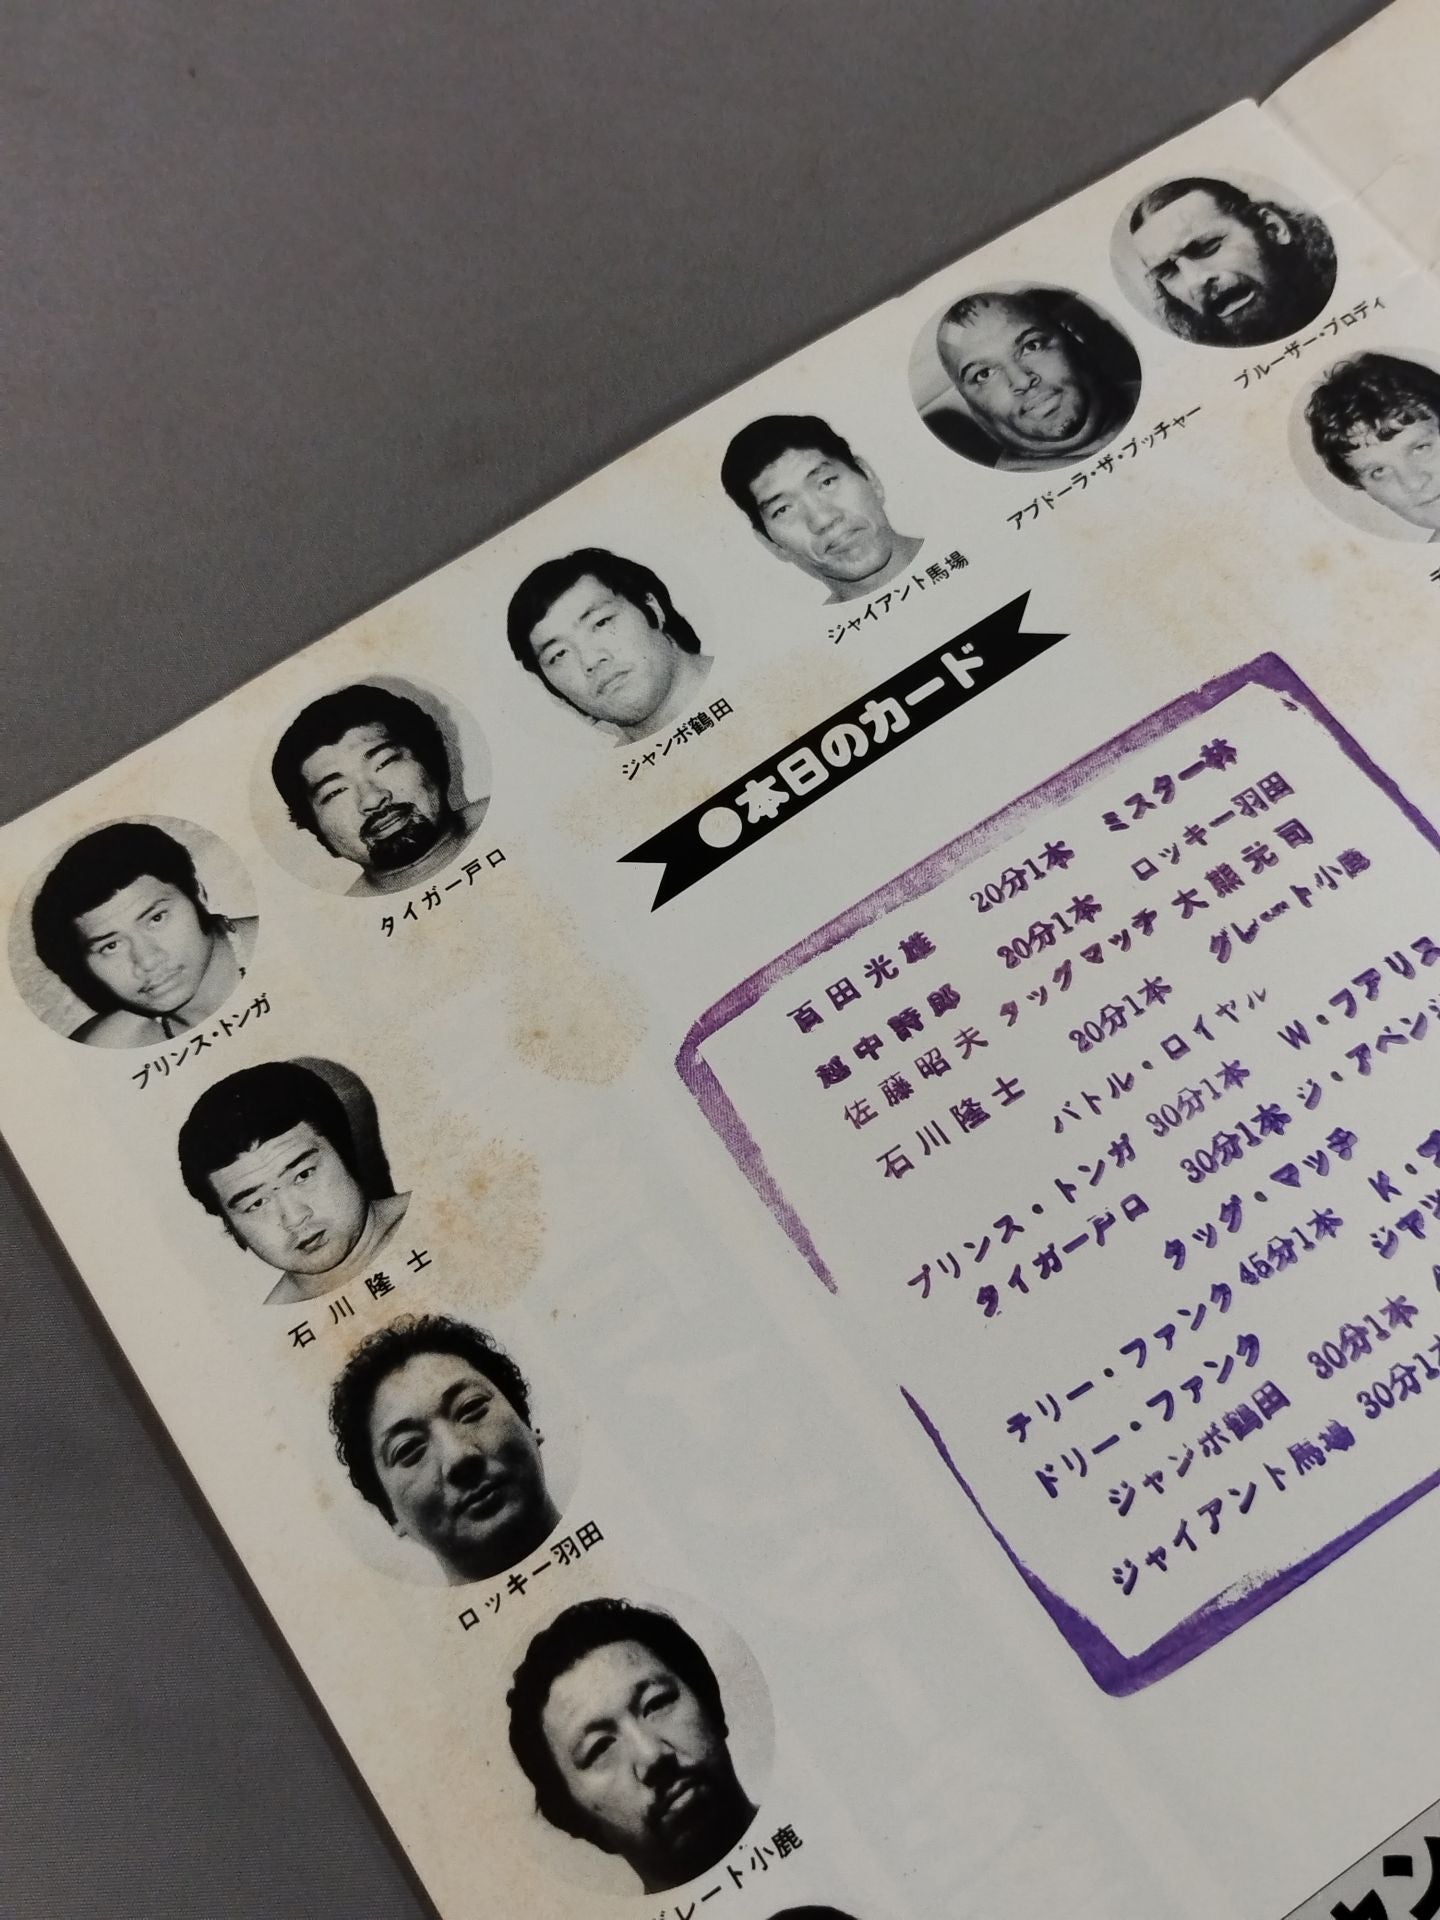 ブルーザー・ブロディ
アブドーラ・ザ・ブッチャー
ジャイアント馬場
ジャンボ鶴田
タイガー戸口
プリンス・トンガ
石川隆士
ロッキー羽田
グレート小鹿
●本日のカード
百田光雄 20分1本 ミスター林
越中詩郎 20分1本 ロッキー羽田
佐藤昭夫 タッグマッチ 大熊元司
石川隆士 20分1本 グレート小鹿
バトル・ロイヤル
プリンス・トンガ 30分1本 W・ファリス
タイガー戸口 30分1本 ジ・アベンジ
タッグ・マッチ
テリー・ファンク 45分1本 K・
ドリー・ファンク
ジャンボ鶴田 30分1本
ジャイアント馬場 30分1本